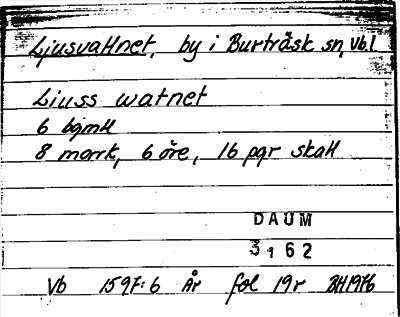 Ljusvattnet, by i Burträsk sn, Vb.l
Liuss watnet
6 bgmtl
8 mark, 6 öre, 16 pgr skatt
DAUM
3162
Vb 1597:6 År fol 19r BH1976